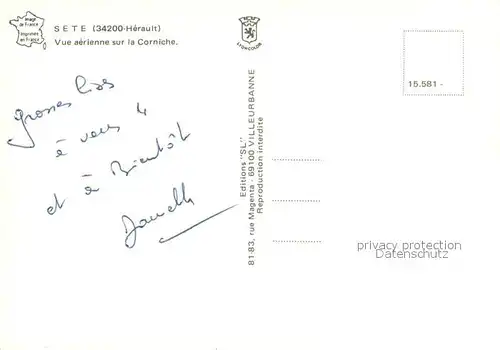 Image
de France
Imprimée
en France
SETE (34200-Hérault)
Vue aérienne sur la Corniche.
LYO-COLOR
15.581 -
Grosses bises
à vous 4
et à Bientôt
Editions "SL"
81-83, rue Magenta - 69100 VILLEURBANNE
Reproduction interdite
privacy protection
Dansolutions